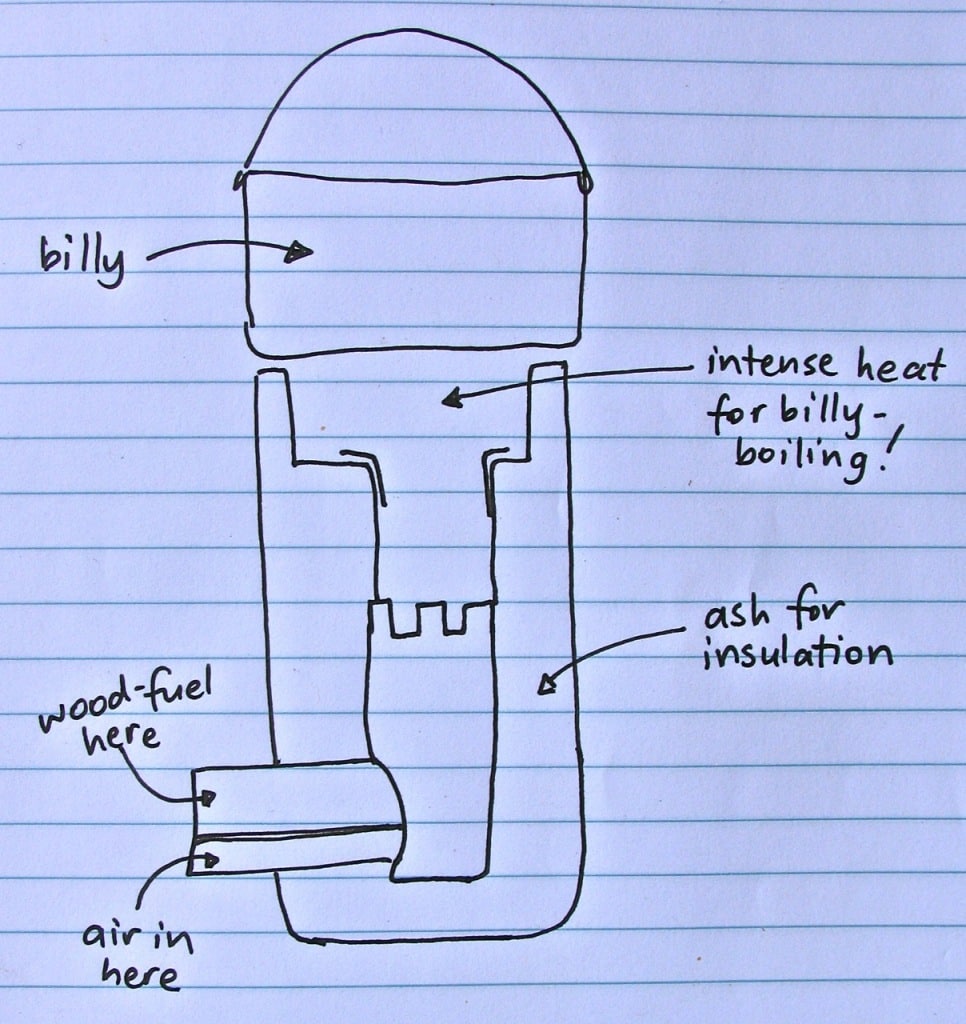 billy
intense heat
for billy-
boiling!
ash for
insulation
wood-fuel
here
air in
here